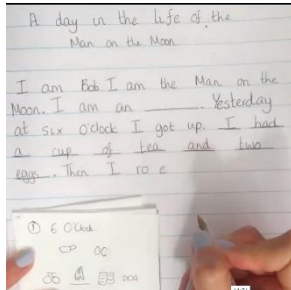 A day in the life of the
Man on the Moon
I am Bob I am the Man on the
Moon. I am an ______. Yesterday
at six O'clock I got up. I had
a cup of tea and two
eggs. Then I ro e
① 6 O'Clock